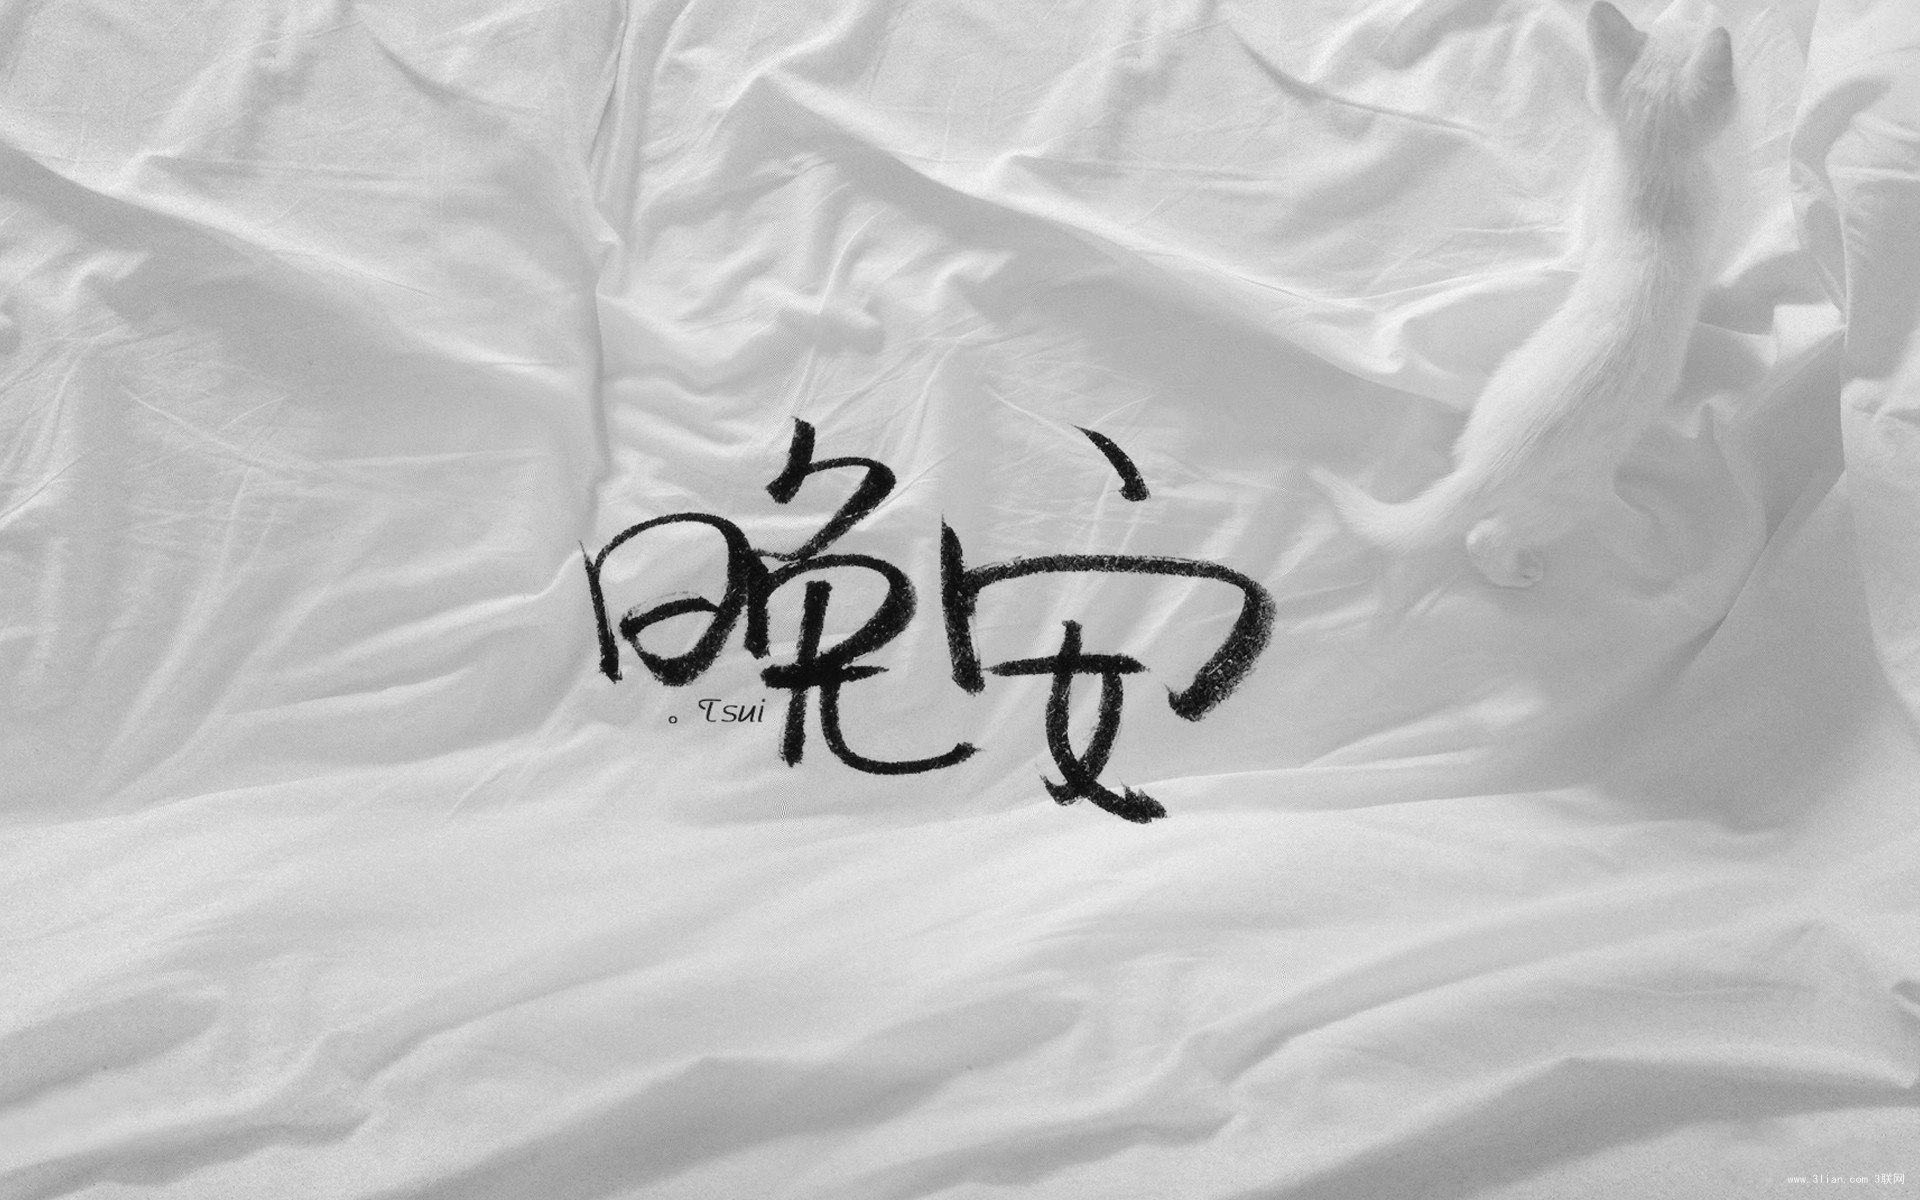 晚安
。Tsui
www.3lian.com 3联网